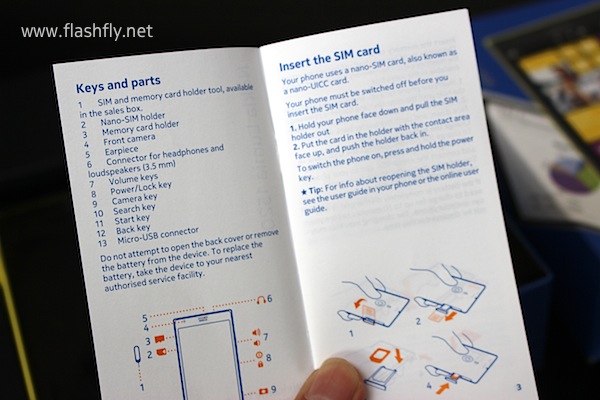 www.flashfly.net
Keys and parts
1 SIM and memory card holder tool, available
in the sales box.
2 Nano-SIM holder
3 Memory card holder
4 Front camera
5 Earpiece
6 Connector for headphones and
loudspeakers (3.5 mm)
7 Volume keys
8 Power/Lock key
9 Camera key
10 Search key
11 Start key
12 Back key
13 Micro-USB connector
Do not attempt to open the back cover or remove
the battery from the device. To replace the
battery, take the device to your nearest
authorised service facility.
5
4
3
2
1
6
7
8
9
Insert the SIM card
Your phone uses a nano-SIM card, also known as
a nano-UICC card.
Your phone must be switched off before you
insert the SIM card.
1. Hold your phone face down and pull the SIM
holder out.
2. Put the card in the holder with the contact area
face up, and push the holder back in.
To switch the phone on, press and hold the power
key.
★ Tip: For info about reopening the SIM holder,
see the user guide in your phone or the online user
guide.
1
2
4
3